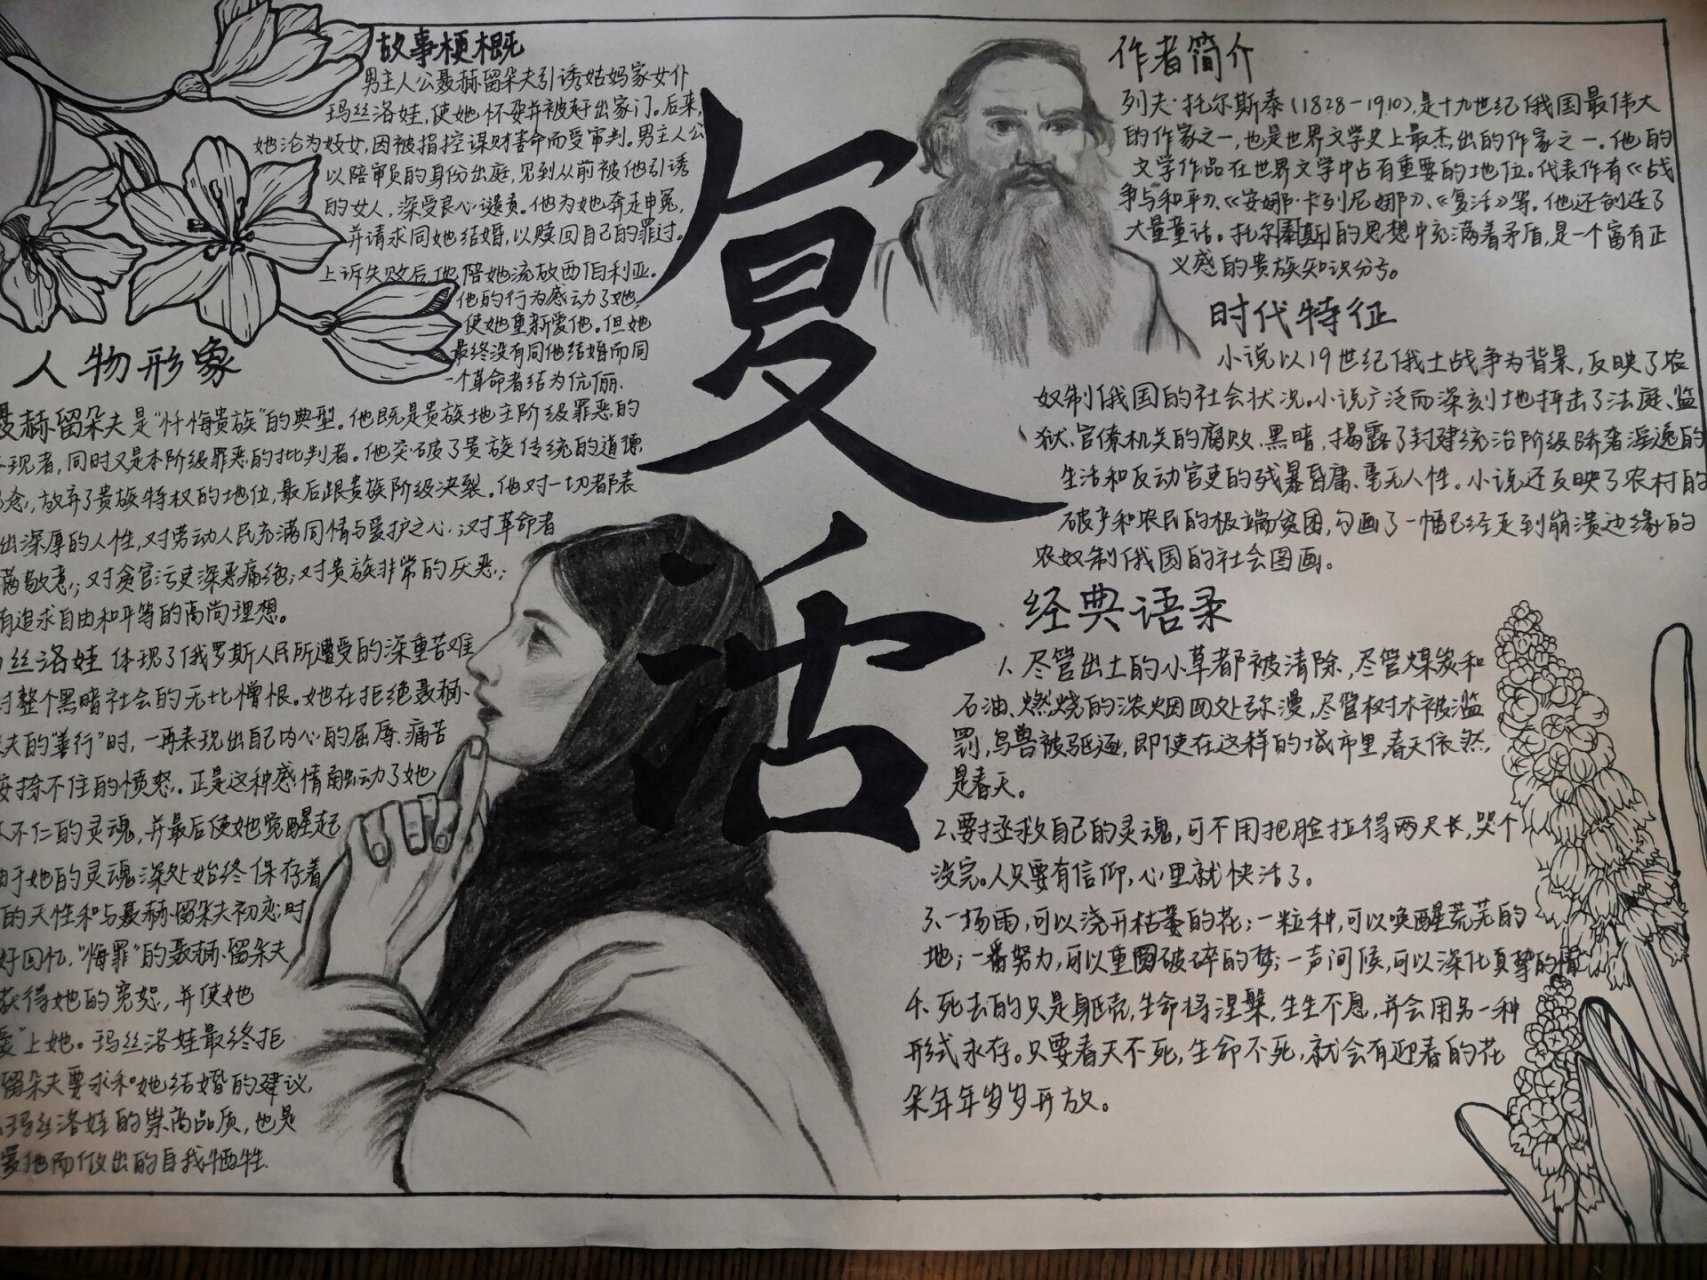 故事梗概
男主人公聂赫留朵夫引诱姑妈家女仆
玛丝洛娃,使她怀孕并被赶出家门。后来,
她沦为妓女,因被指控谋财害命而受审判。男主人公
以陪审员的身份出庭,见到从前被他引诱
的女人,深受良心谴责。他为她奔走申冤,
并请求同她结婚,以赎回自己的罪过。
上诉失败后,他陪她流放西伯利亚。
他的行为感动了她,
使她重新爱他。但她
最终没有同他结婚而同
一个革命者结为伉俪.
人物形象
聂赫留朵夫是"忏悔贵族"的典型。他既是贵族地主阶级罪恶的
现者,同时又是本阶级罪恶的批判者。他突破了贵族传统的道德
念,放弃了贵族特权的地位,最后跟贵族阶级决裂。他对一切都表
出深厚的人性,对劳动人民充满同情与爱护之心;对革命者
满敬意;对贪官污吏深恶痛绝;对贵族非常的厌恶;
有追求自由和平等的高尚理想。
丝洛娃 体现了俄罗斯人民所遭受的深重苦难
对整个黑暗社会的无比憎恨。她在拒绝聂赫
夫的"善行"时,一再表现出自己内心的屈辱、痛苦
按捺不住的愤怒。正是这种感情触动了她
木不仁的灵魂,并最后使她觉醒起
由于她的灵魂深处始终保存着
的天性和与聂赫留朵夫初恋时
好回忆,"悔罪"的聂赫留朵夫
获得她的宽恕,并使她
爱"上她。玛丝洛娃最终拒
留朵夫要求和她结婚的建议,
玛丝洛娃的崇高品质,也是
爱他而做出的自我牺牲.
复活
作者简介
列夫·托尔斯泰(1828-1910),是十九世纪俄国最伟大
的作家之一,也是世界文学史上最杰出的作家之一。他的
文学作品在世界文学中占有重要的地位。代表作有《战
争与和平》、《安娜·卡列尼娜》、《复活》等。他还创造了
大量童话。托尔斯的思想中充满着矛盾,是一个富有正
义感的贵族知识分子。
时代特征
小说以19世纪俄土战争为背景,反映了农
奴制俄国的社会状况。小说广泛而深刻地抨击了法庭、监
狱、官僚机关的腐败、黑暗,揭露了封建统治阶级骄奢淫逸的
生活和反动官吏的残暴昏庸、毫无人性。小说还反映了农村的
破产和农民的极端贫困,勾画了一幅已经走到崩溃边缘的
农奴制俄国的社会图画。
经典语录
1、尽管出土的小草都被清除,尽管煤炭和
石油、燃烧的浓烟四处弥漫,尽管树木被滥
罚,鸟兽被驱逐,即使在这样的城市里,春天依然,
是春天。
2、要拯救自己的灵魂,可不用把脸拉得两尺长,哭个
没完。人只要有信仰,心里就快活了。
3、一场雨,可以浇开枯萎的花;一粒种,可以唤醒荒芜的
地;一番努力,可以重圆破碎的梦;一声问候,可以深化真挚的情
4、死去的只是躯壳,生命将涅槃,生生不息,并会用另一种
形式永存。只要春天不死,生命不死,就会有迎春的花
朵年年岁岁开放。